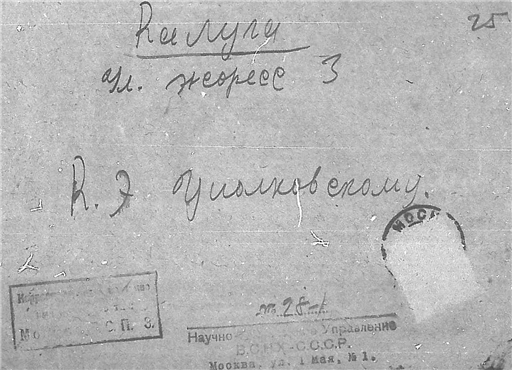 25
Калуга
ул. Жоресс 3
К. Э Циолковскому.
МОСК
П. З.
т. 28-1
Научно Управление
В.С.Н.Х.-С.С.С.Р.
Москва, ул. 1 Мая, № 1.